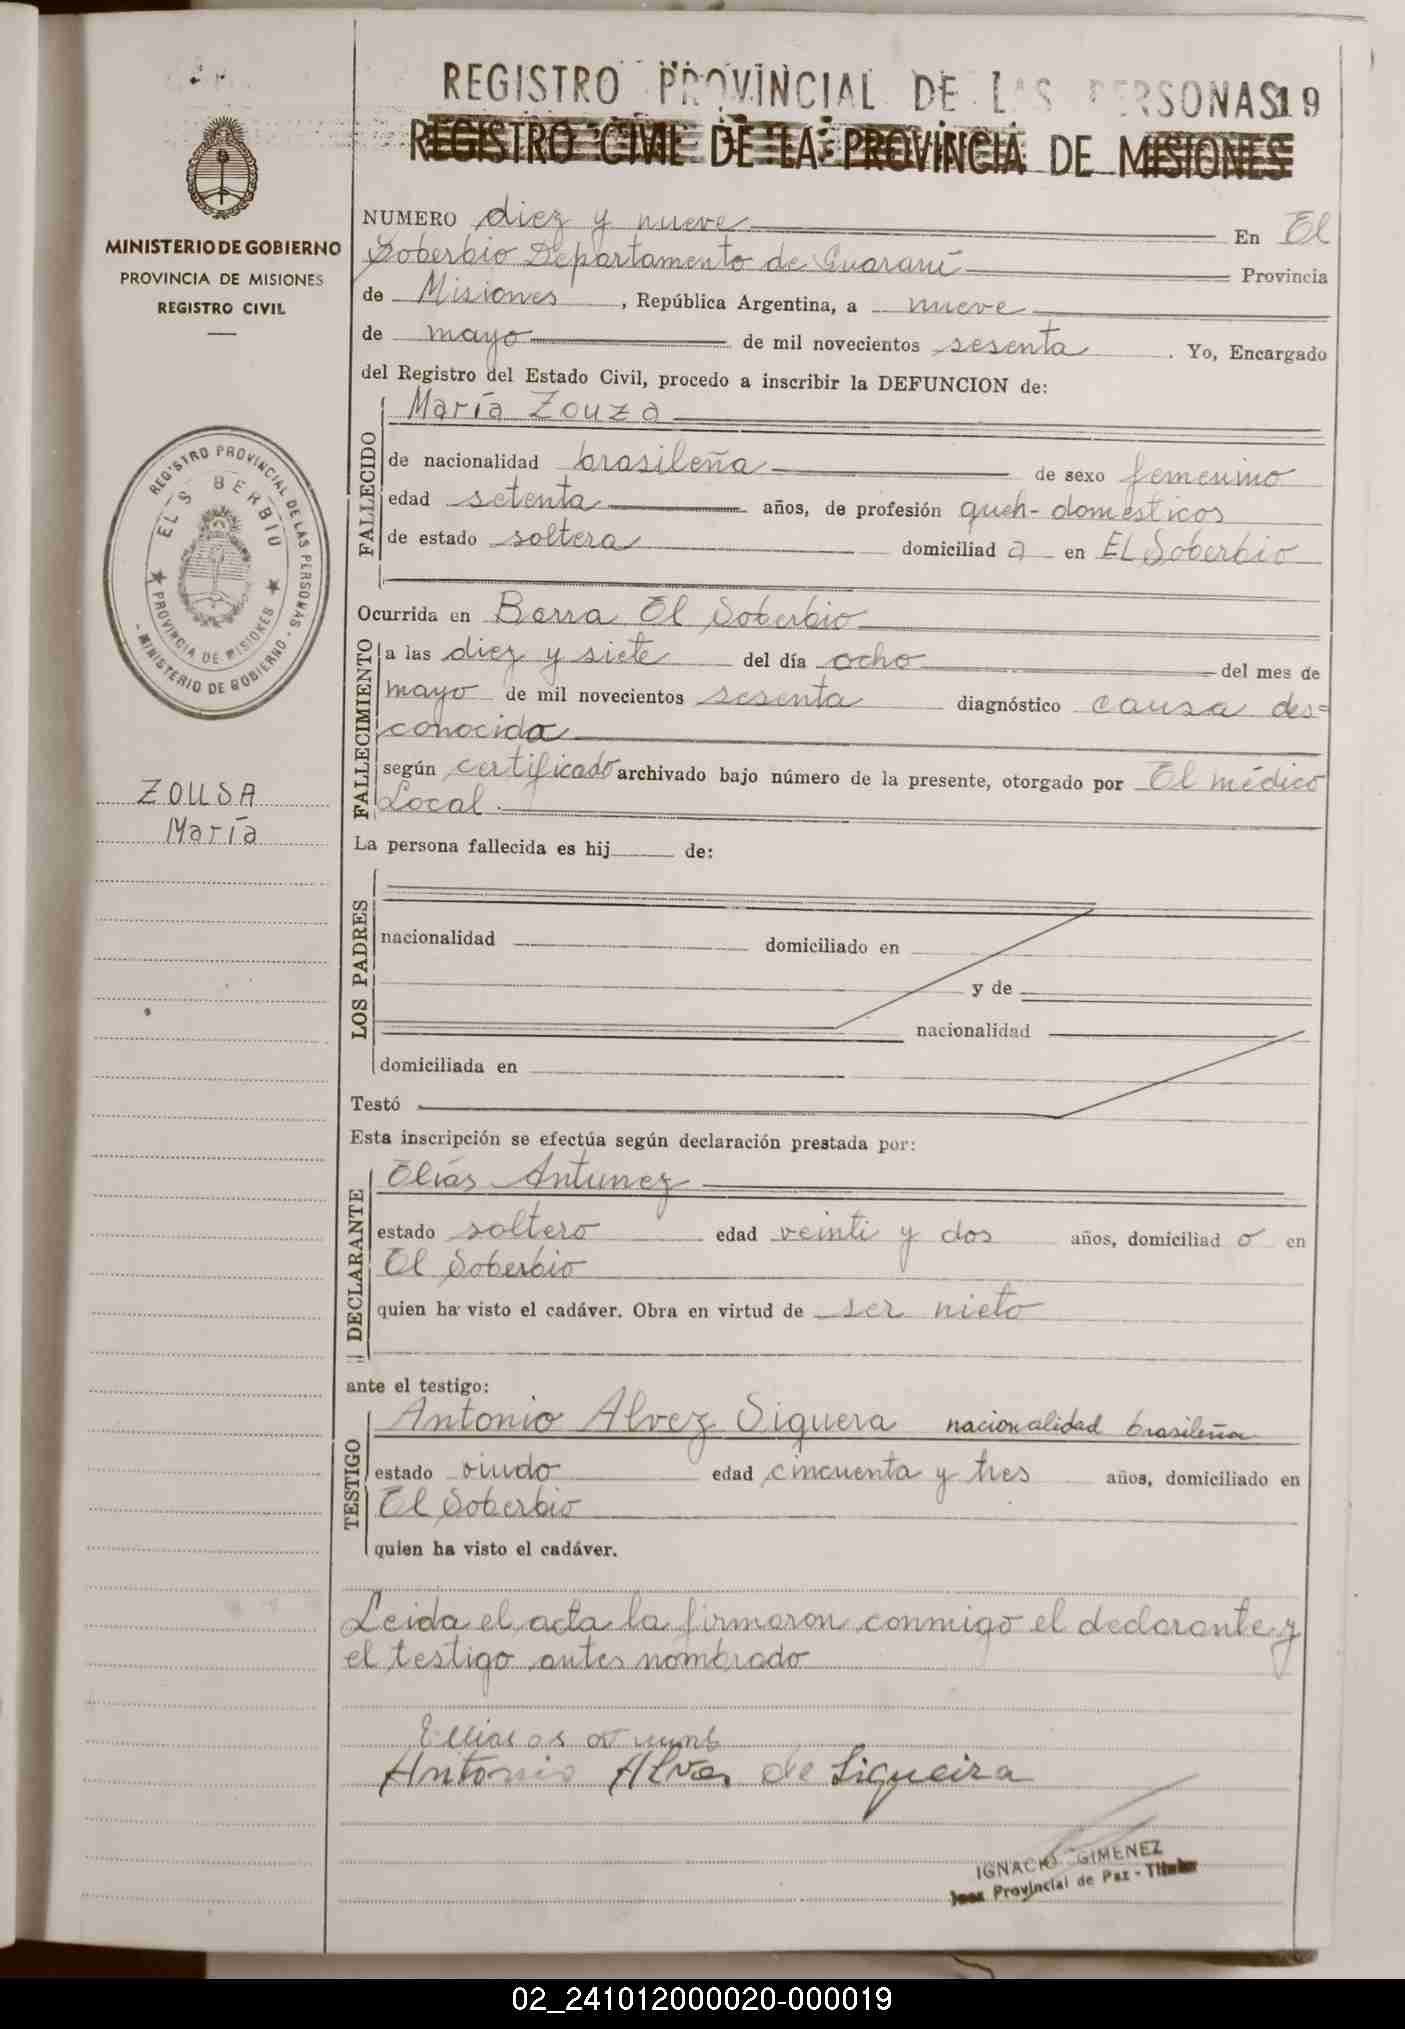 REGISTRO PROVINCIAL DE LAS PERSONAS 19
REGISTRO CIVIL DE LA PROVINCIA DE MISIONES
MINISTERIO DE GOBIERNO
PROVINCIA DE MISIONES
REGISTRO CIVIL
REGISTRO PROVINCIAL DE LAS PERSONAS
MINISTERIO DE GOBIERNO
PROVINCIA DE MISIONES
ZOUSA
María
NUMERO diez y nueve En El
Soberbio Departamento de Guaraní Provincia
de Misiones, República Argentina, a nueve
de mayo de mil novecientos sesenta. Yo, Encargado
del Registro del Estado Civil, procedo a inscribir la DEFUNCION de:
FALLECIDO
María Zouza
de nacionalidad brasileña de sexo femenino
edad setenta años, de profesión queh-domesticos
de estado soltera domiciliad a en EL Soberbio
Ocurrida en Barra El Soberbio
FALLECIMIENTO
a las diez y siete del día ocho del mes de
mayo de mil novecientos sesenta diagnóstico causa des=
conocida
según certificado archivado bajo número de la presente, otorgado por El médico
Local.
La persona fallecida es hij de:
LOS PADRES
nacionalidad domiciliado en
y de
nacionalidad
domiciliada en
Testó
Esta inscripción se efectúa según declaración prestada por:
DECLARANTE
Elías Antunez
estado soltero edad veinti y dos años, domiciliad o en
El Soberbio
quien ha visto el cadáver. Obra en virtud de ser nieto
ante el testigo:
TESTIGO
Antonio Alvez Siguera nacionalidad brasileña
estado viudo edad cincuenta y tres años, domiciliado en
El Soberbio
quien ha visto el cadáver.
Leida el acta la firmaron conmigo el declarante y
el testigo antes nombrado
Antonio Alves de Siqueira
IGNACIO GIMENEZ
Juez Provincial de Paz - Titular
02_241012000020-000019